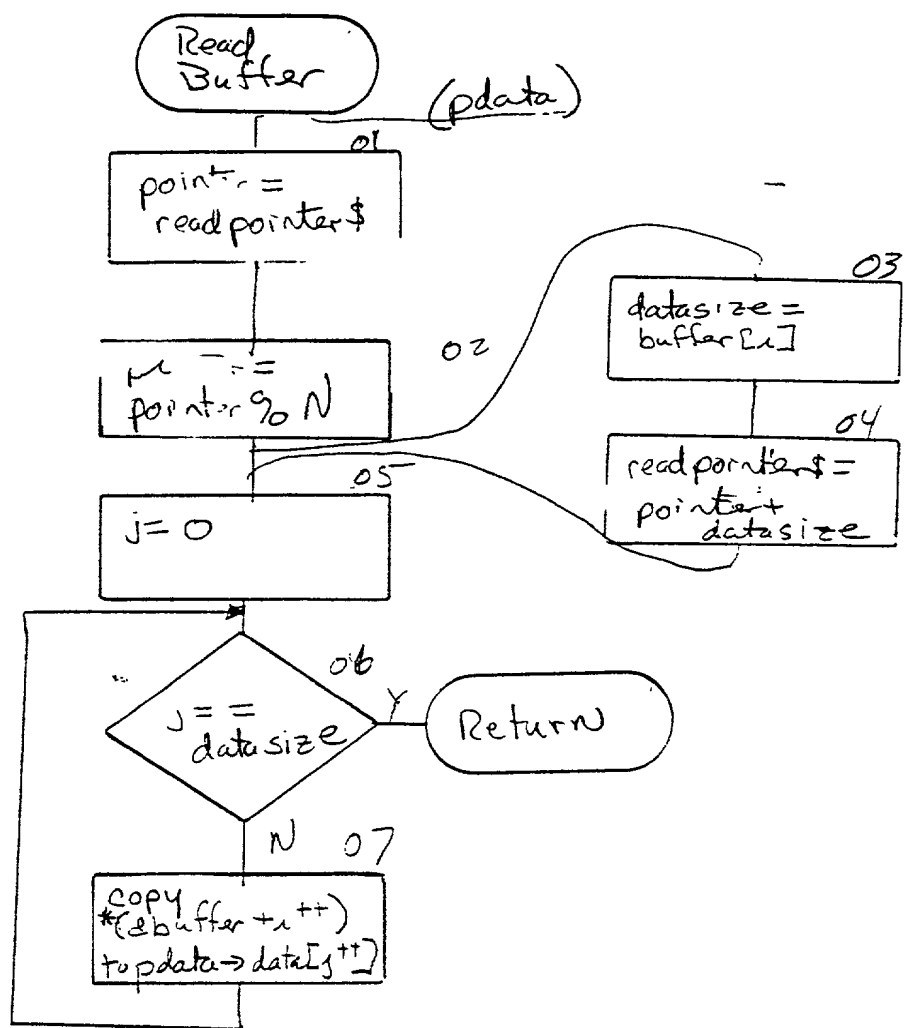 Read
Buffer
(pdata)
01
=
readpointer$
02
pointer % N
03
datasize =
buffer[i]
04
readpointer$ =
pointer +
datasize
05
j = 0
06
j = =
datasize
Y
Return
N
07
copy
*(&buffer + i++)
to pdata → data[j++]